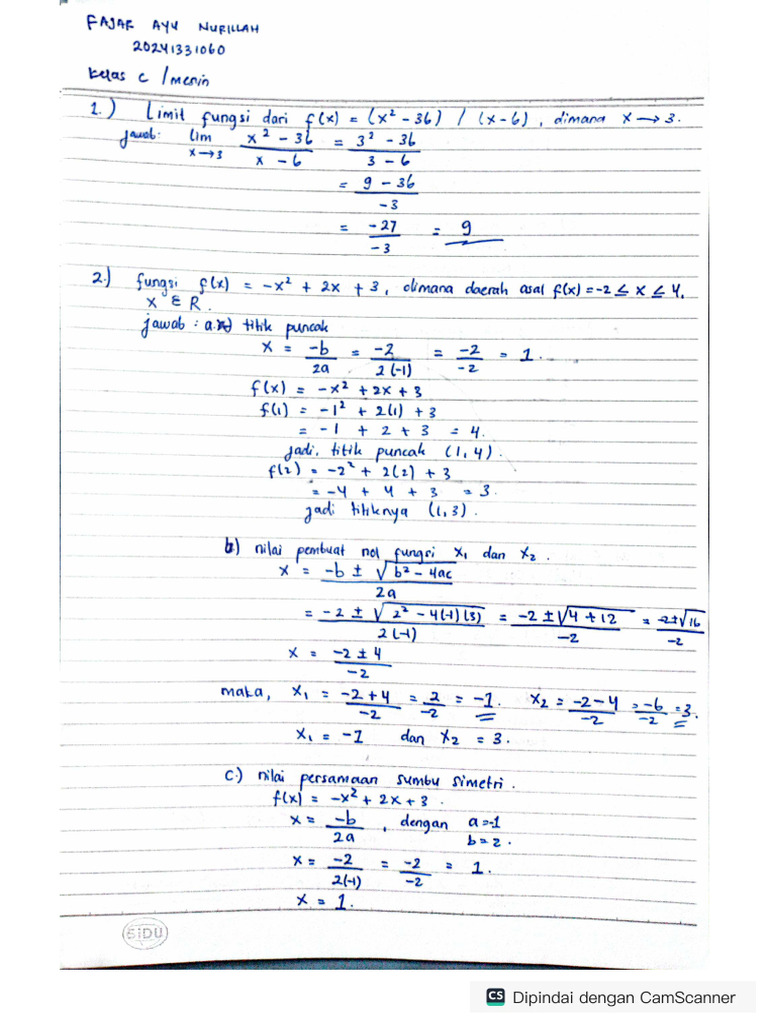 FAJAR AYU NURILLAH
20241331060
Kelas C / menin
1.) Limit fungsi dari f(x) = (x² - 36) / (x-6), dimana x → 3.
Jawab: lim x→3 x² - 36 / x - 6 = 3² - 36 / 3 - 6
= 9 - 36 / -3
= -27 / -3 = 9
2.) fungsi f(x) = -x² + 2x + 3, dimana daerah asal f(x) = -2 ≤ x ≤ 4,
x ∈ R.
jawab : a. titik puncak
x = -b / 2a = -2 / 2(-1) = -2 / -2 = 1.
f(x) = -x² + 2x + 3
f(1) = -1² + 2(1) + 3
= -1 + 2 + 3 = 4.
jadi, titik puncak (1, 4).
f(2) = -2² + 2(2) + 3
= -4 + 4 + 3 = 3.
jadi titiknya (1, 3).
b) nilai pembuat nol fungsi x₁ dan x₂.
x = -b ± √b² - 4ac / 2a
= -2 ± √2² - 4(-1)(3) / 2(-1) = -2 ± √4 + 12 / -2 = -2±√16 / -2
x = -2 ± 4 / -2
maka, x₁ = -2 + 4 / -2 = 2 / -2 = -1. x₂ = -2 - 4 / -2 = -6 / -2 = 3.
x₁ = -1 dan x₂ = 3.
c.) nilai persamaan sumbu simetri.
f(x) = -x² + 2x + 3.
x = -b / 2a, dengan a=-1
b=2.
x = -2 / 2(-1) = -2 / -2 = 1.
x = 1.
SiDU
CS Dipindai dengan CamScanner